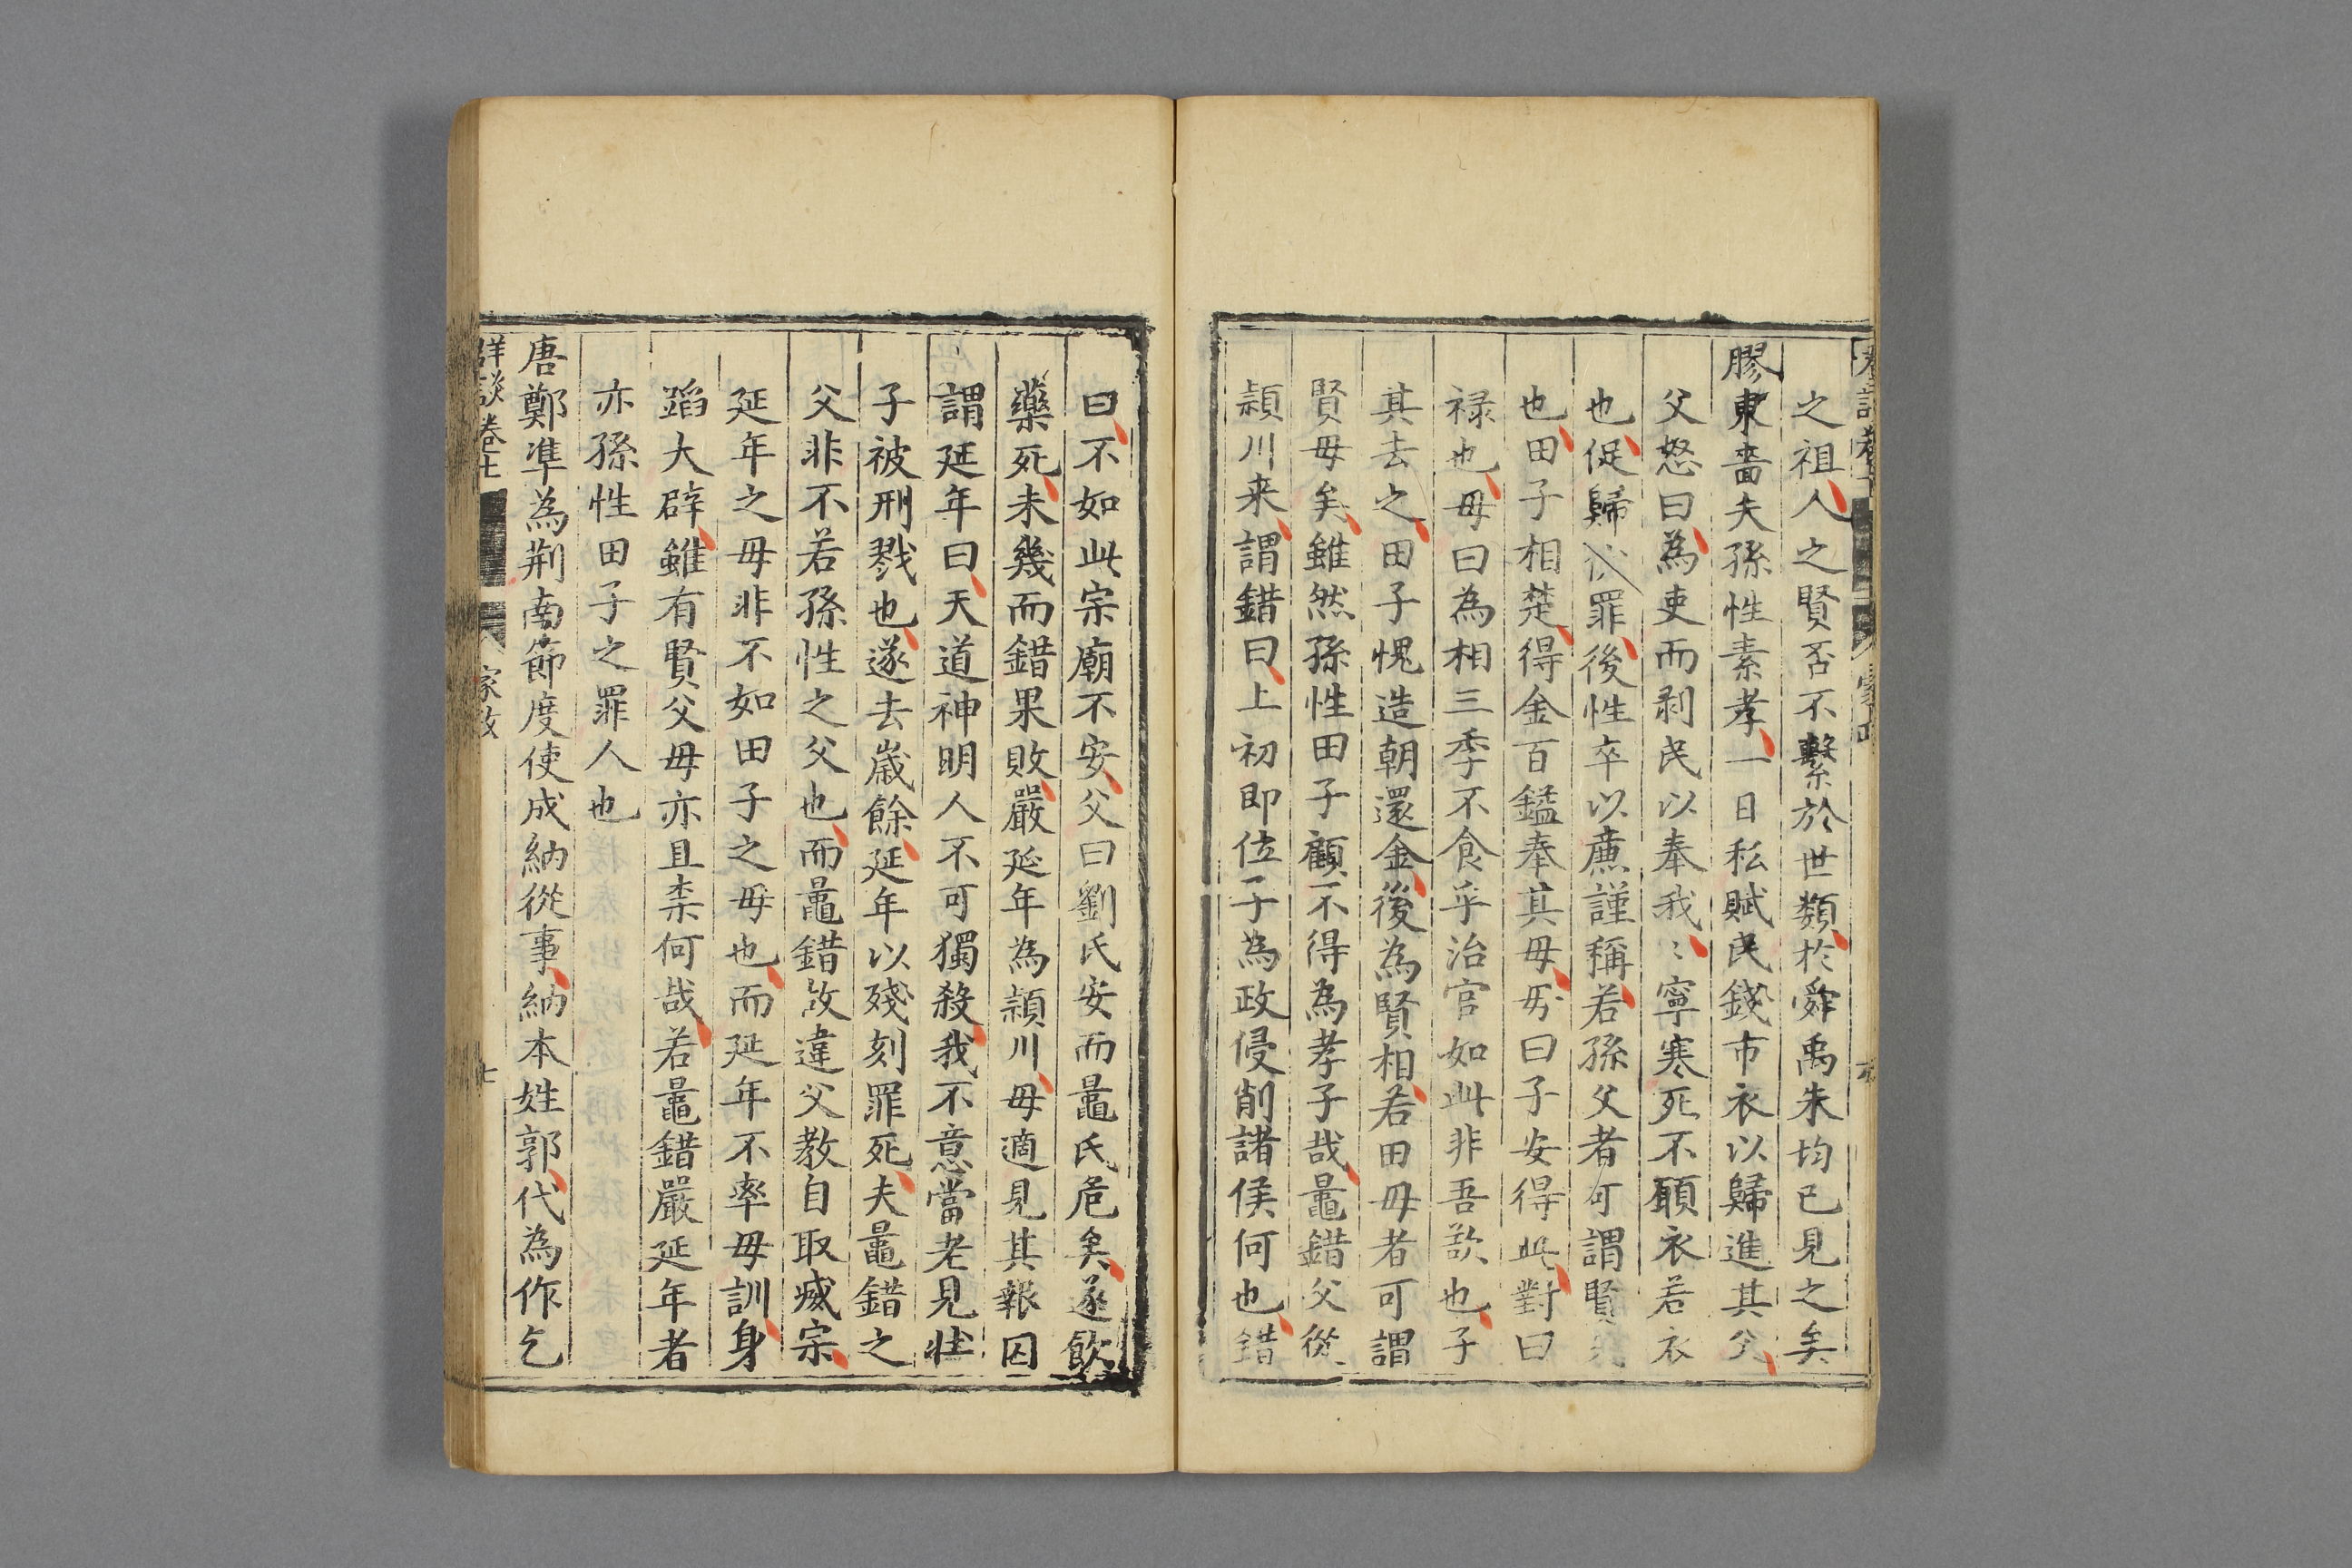 之祖人之賢否不繫於世類於舜禹朱均已見之矣
膠東嗇夫孫性素孝一日私賦民錢市衣以歸進其父
父怒曰為吏而剥民以奉我〻寧寒死不願衣若衣
也促歸伏罪後性卒以亷謹稱若孫父者可謂賢矣
也田子相楚得金百鎰奉其母母曰子安得此對曰
禄也母曰為相三季不食乎治官如此非吾欲也子
其去之田子愧造朝還金後為賢相若田母者可謂
賢母矣雖然孫性田子顧不得為孝子哉鼂錯父從
頴川来謂錯曰上初即位子為政侵削諸侯何也錯
曰不如此宗廟不安父曰劉氏安而鼂氏危矣遂飲
藥死未幾而錯果敗嚴延年為頴川母適見其報囚
謂延年曰天道神明人不可獨殺我不意當老見壯
子被刑戮也遂去嵗餘延年以殘刻罪死夫鼂錯之
父非不若孫性之父也而鼂錯敀違父教自取烕宗
延年之母非不如田子之母也而延年不率母訓身
蹈大辟雖有賢父母亦且柰何哉若鼂錯嚴延年者
亦孫性田子之罪人也
唐鄭準為荆南節度使成納從事納本姓郭代為作乞
群談卷十 家政 七